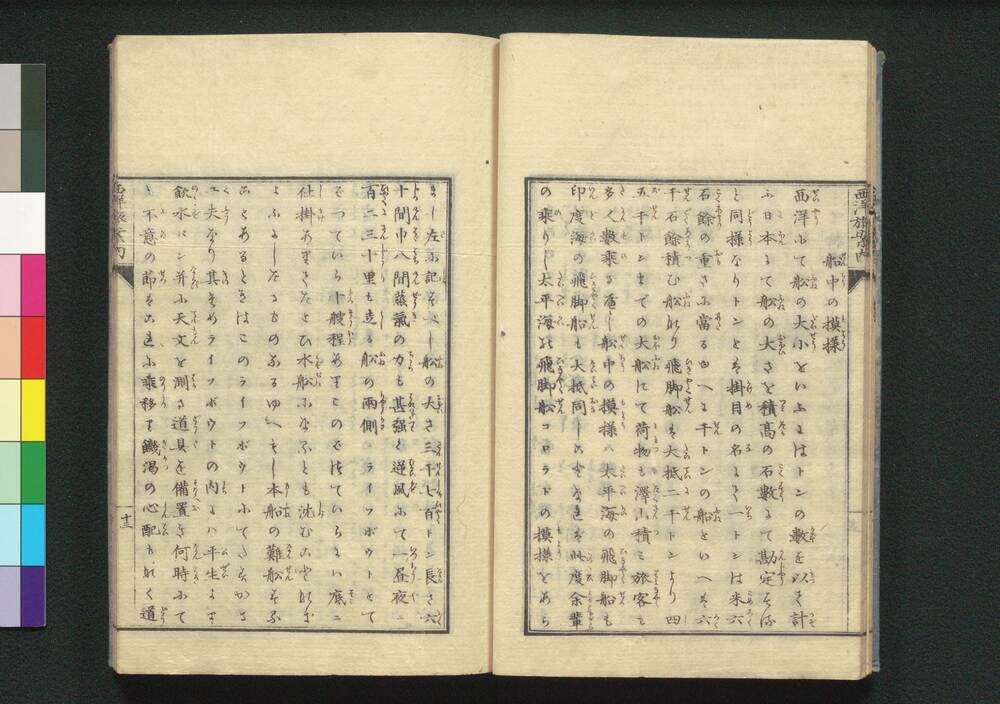 西洋旅案内
船中の摸様
西洋にて船の大小をいふにはトンの數を以て計
ふ日本にて船の大さを積高の石數にて勘定する
と同様なりトンとは掛目の名にて一トンは米六
石餘の重さに當るゆへに千トンの船といへば六
千石餘積む船なり飛脚船は大抵二千トンより四
五千トンまでの大船にて荷物も澤山積み旅客も
多く數乘る
船中の摸様ハ太平海の飛脚船も
印度海の飛脚船も大抵同し
此度余輩
の乘りし太平海の飛脚船コロラドの摸様をあら
まし左に記すべし船の大さ三千七百トン長さ六
十間巾八間蒸氣の力も甚強く逆風にて一晝夜ニ
百二三十里も走る船の兩側ニライフボウトとて
てつていら十艘程あり
底ニ
仕掛ありてたとひ水船になるとも沈むことなき
よふにしたるものなるゆへもし本船の難船する
ことあるときはこのライフボウトにてたすかる
工夫なり其ためライフボウトの内にハ平生より
飲水パン并に天文を測る道具を備置き何時にて
も不意の節はこれに乘移り饑渇の心配もなく道
西洋旅案内
十三